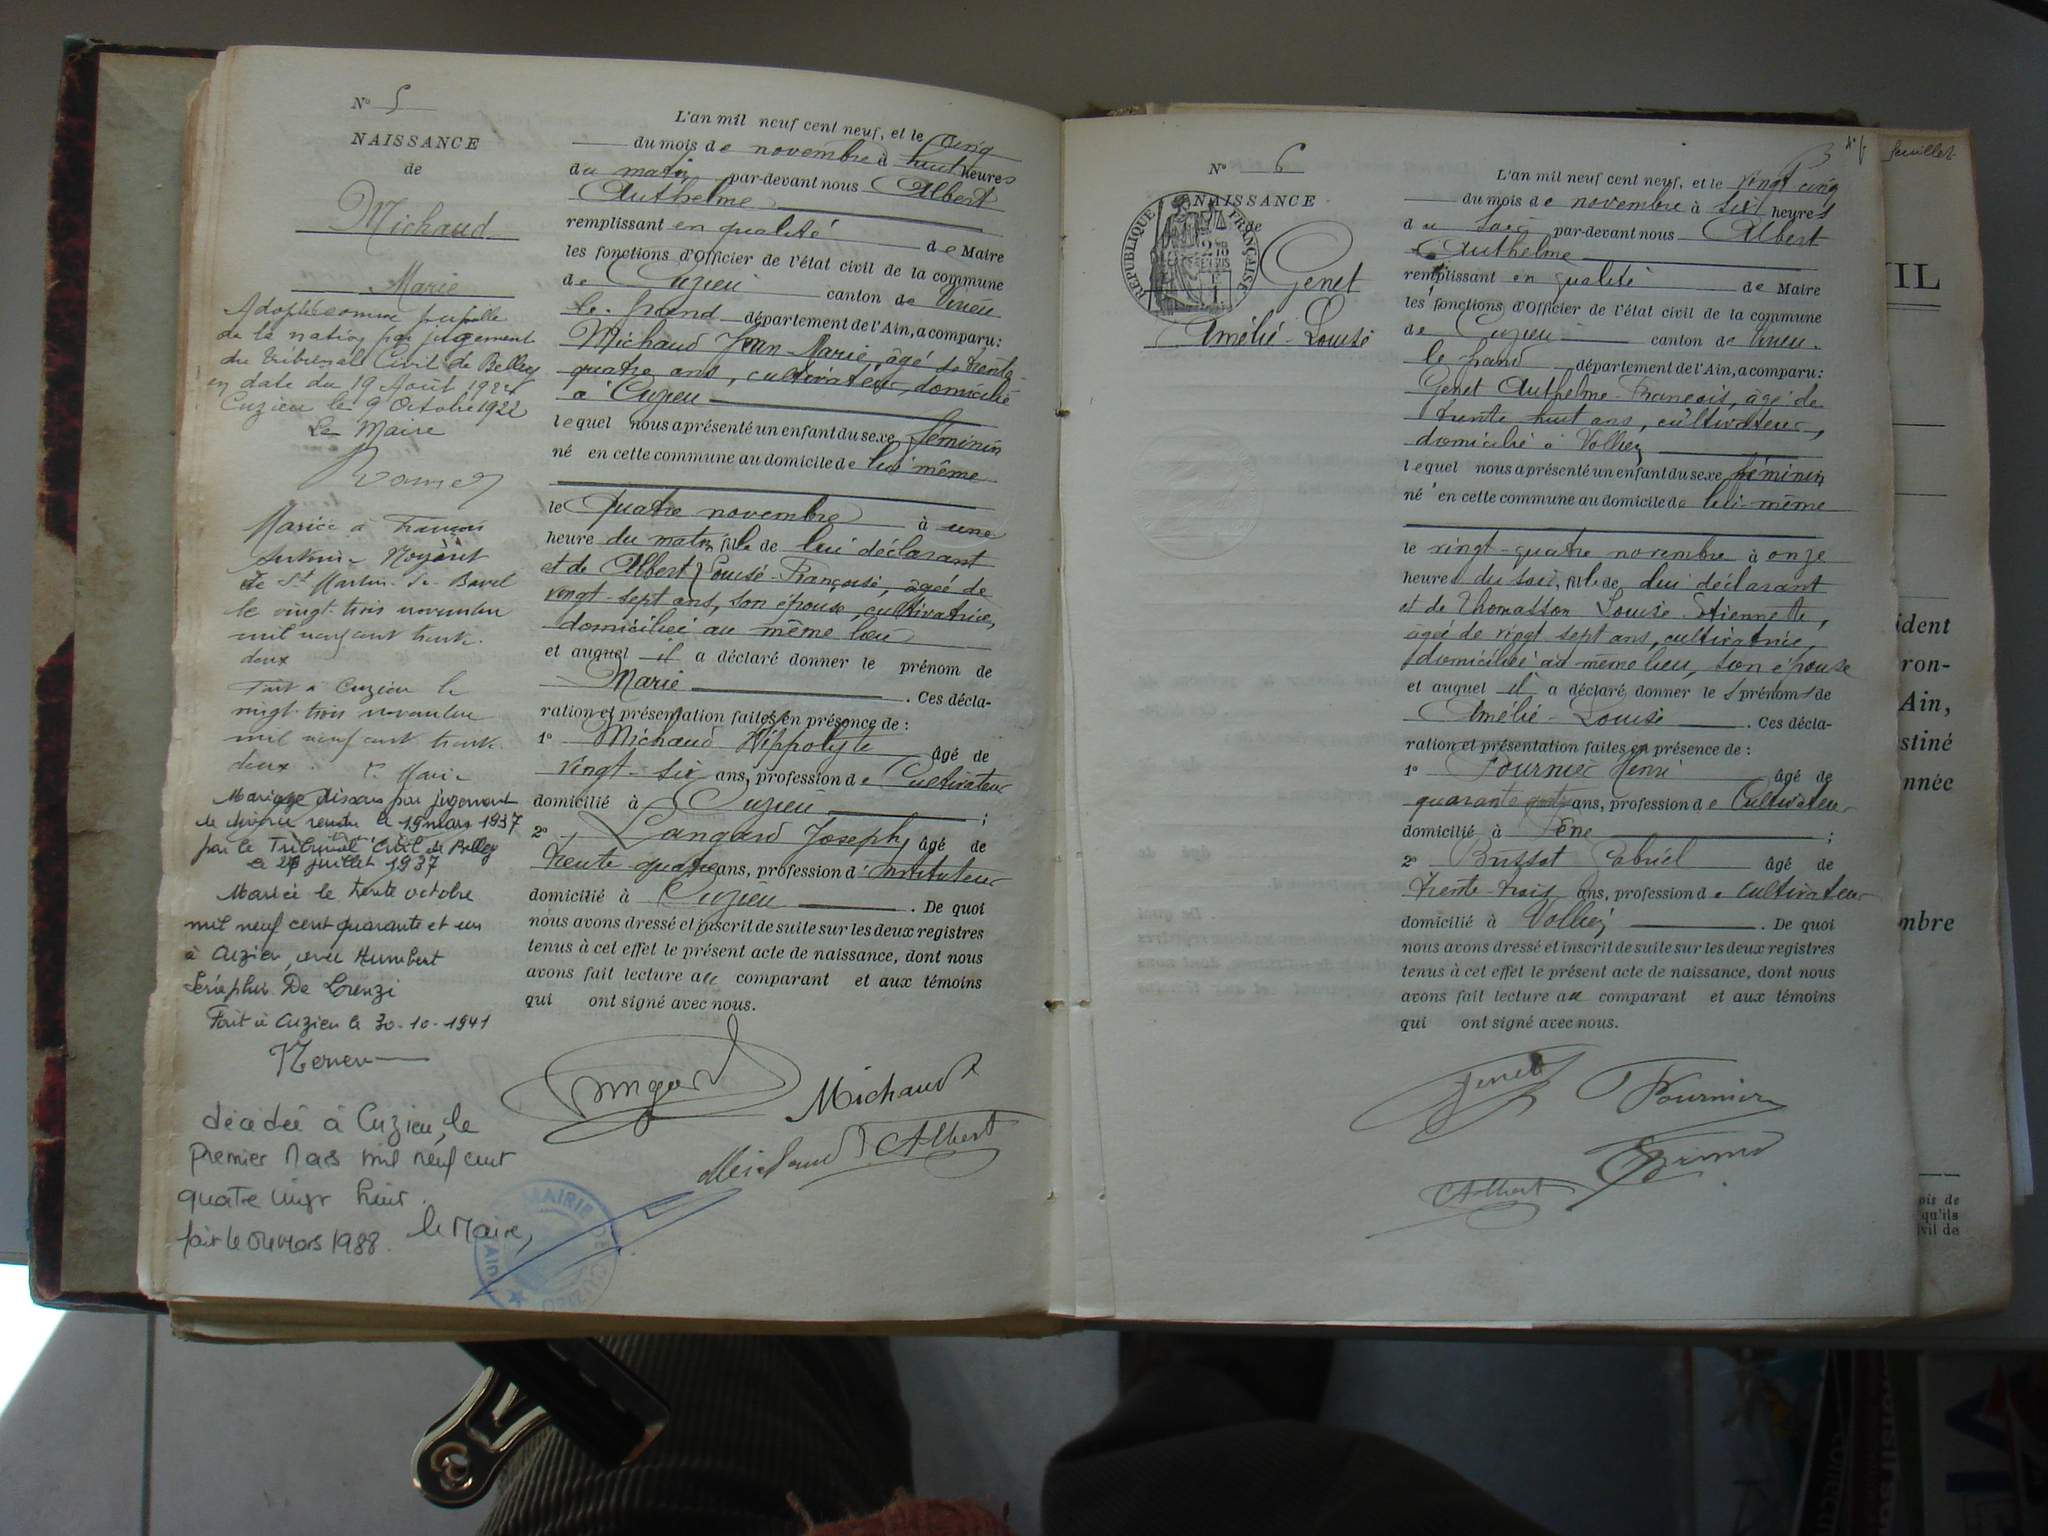 N° 5
NAISSANCE
de
Michaud
Marie
Adoptée comme pupille
de la nation par jugement
du Tribunal Civil de Belley
en date du 19 Août 1922
Cuzieu le 9 Octobre 1922
Le Maire
Mariée à François
Noyeret
de St Martin de Bavel
le vingt trois novembre
mil neuf cent trente
deux
Fait à Cuzieu le
vingt trois novembre
mil neuf cent trente
deux. Le Maire
Mariage dissous par jugement
de divorce rendu le 15 mars 1937
par le Tribunal Civil de Belley
le juillet 1937
Mariée le trente octobre
mil neuf cent quarante et un
à Cuzieu, avec Humbert
Séraphin De Lorenzi
Fait à Cuzieu le 30-10-1941
décédée à Cuzieu, le
premier Mars mil neuf cent
quatre vingt huit.
fait le 04 Mars 1988. le Maire,
MAIRIE DE CUZIEU (AIN)
L'an mil neuf cent neuf, et le cinq
du mois de novembre à huit heures
du matin par-devant nous Albert
Anthelme
remplissant en qualité de Maire
les fonctions d'Officier de l'état civil de la commune
de Cuzieu canton de Virieu
le-Grand département de l'Ain, a comparu:
Michaud Jean-Marie, âgé de trente-
quatre ans, cultivateur, domicilié
à Cuzieu
lequel nous a présenté un enfant du sexe féminin
né en cette commune au domicile de lui même
le quatre novembre à une
heure du matin, fille de lui déclarant
et de Albert Louise-Françoise, âgée de
vingt-sept ans, son épouse, cultivatrice,
domiciliée au même lieu
et auquel il a déclaré donner le prénom de
Marie . Ces décla-
ration et présentation faites en présence de :
1° Michaud Hippolyte âgé de
vingt-six ans, profession de Cultivateur
domicilié à Cuzieu ;
2° Langard Joseph, âgé de
trente-quatre ans, profession d'instituteur
domicilié à Cuzieu . De quoi
nous avons dressé et inscrit de suite sur les deux registres
tenus à cet effet le présent acte de naissance, dont nous
avons fait lecture au comparant et aux témoins
qui ont signé avec nous.
Langard Michaud
Michaud Albert
feuillet
N° 6
NAISSANCE
de
RÉPUBLIQUE FRANÇAISE
Genet
Amélie-Louise
L'an mil neuf cent neuf, et le vingt cinq
du mois de novembre à six heures
du soir par-devant nous Albert
Anthelme
remplissant en qualité de Maire
les fonctions d'Officier de l'état civil de la commune
de Cuzieu canton de Virieu-
le Grand département de l'Ain, a comparu:
Genet Anthelme-François, âgé de
trente huit ans, cultivateur,
domicilié à Vollien
lequel nous a présenté un enfant du sexe féminin
né en cette commune au domicile de lui-même
le vingt-quatre novembre à onze
heures du soir, fille de lui déclarant
et de Thomasson Louise Etiennette,
âgée de vingt sept ans, cultivatrice,
domiciliée au même lieu, son épouse
et auquel il a déclaré donner les prénoms de
Amélie-Louise . Ces décla-
ration et présentation faites en présence de :
1° Fournier Henri âgé de
quarante ans, profession de Cultivateur
domicilié à ;
2° Gabriel âgé de
trente-trois ans, profession de cultivateur
domicilié à Vollien . De quoi
nous avons dressé et inscrit de suite sur les deux registres
tenus à cet effet le présent acte de naissance, dont nous
avons fait lecture au comparant et aux témoins
qui ont signé avec nous.
Genet Fournier
Albert
VIL
ident
ron-
Ain,
stiné
nnée
mbre
ois de
qu'ils
ivil de